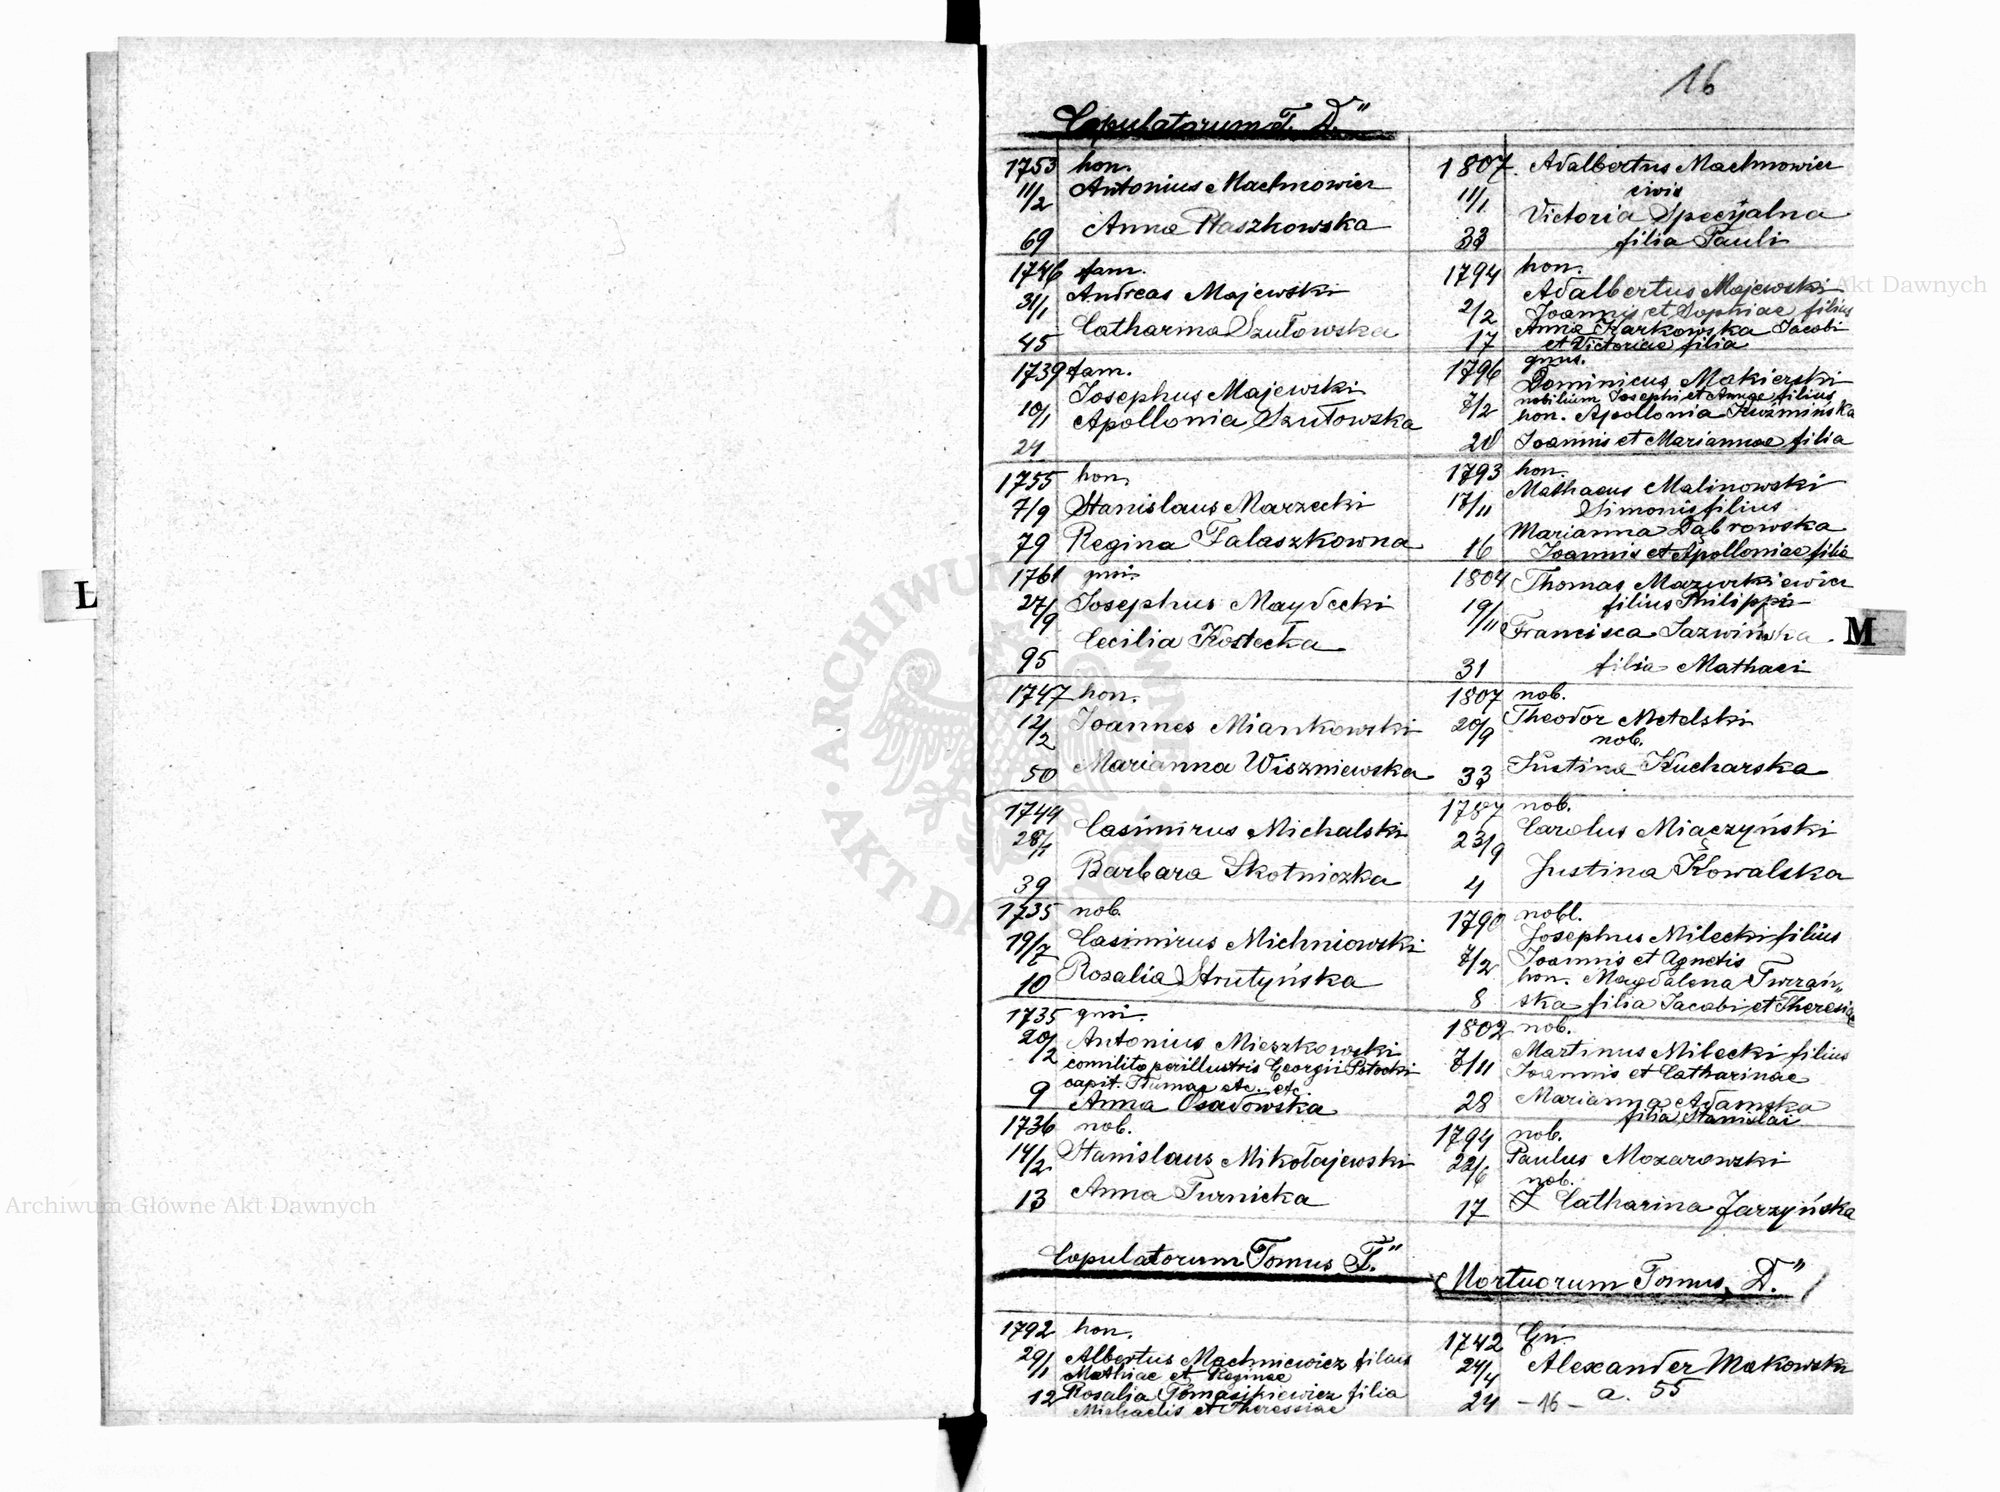 16
Copulatorum T. D."
1753 hon.
11/2 Antonius Machnowicz
69 Anna Ptaszkowska
1746 fam.
31/1 Andreas Majewski
45 Catharina Szutowska
1739 fam.
10/1 Josephus Majewski
Apollonia Szutowska
24
1755 hon.
7/9 Stanislaus Marzecki
79 Regina Falaszkowna
1761 gni.
27/9 Josephus Maydecki
Cecilia Kostecka
95
1747 hon.
12/2 Joannes Miankowski
50 Marianna Wiszniewska
1744
28/1 Casimirus Michalski
39 Barbara Skotniczka
1735 nob.
19/7 Casimirus Michniowski
10 Rozalia Strutyńska
1735 gni.
20/2 Antonius Mieszkowski
comilito perillustris Georgii Potocki
capit. etc. etc.
9 Anna Osadowska
1736 nob.
14/2 Stanislaus Mikołajewski
13 Anna Turnicka
Copulatorum Tomus F."
1792 hon.
29/1 Albertus Machniewicz filius
Mathiae et Reginae
12 Rosalia Tomasikiewicz filia
Michaelis et Theressiae
1807. Adalbertus Machnowicz
11/1 civis
Victoria Specyalna
33 filia Pauli
1794 hon.
Adalbertus Majewski
2/2 Joannis et Sophiae filius
17 Anna Karkowska Jacobi
et Victoriae filia
1796 gnus.
Dominicus Makierski
7/2 nobilium Josephi et Annae filius
hon. Apollonia Kuźmińska
20 Joannis et Mariannae filia
1793 hon.
17/11 Mathaeus Malinowski
Simonis filius
Marianna Dąbrowska
16 Joannis et Apolloniae filia
1804 Thomas Mazurkiewicz
19/11 filius Philippi
Francisca Jazwińska
31 filia Mathaei
1807 nob.
20/9 Theodor Metelski
nob.
33 Justina Kucharska
1787 nob.
23/9 Carolus Miączyński
4 Justina Kowalska
1790 nobl.
Josephus Milecki filius
7/2 Joannis et Agnetis
hon. Magdalena Twrzań„
8 ska filia Jacobi et Theresiae
1802 nob.
7/11 Martinus Milecki filius
Joannis et Catharinae
28 Marianna Adamska
filia Stanislai
1794 nob.
22/6 Paulus Mozarowski
nob.
17 Catharina Jarzyńska
Mortuorum Tomus D."
1742 Gn.
24/4 Alexander Makowski
24 - 16 - a. 55
L
M
Archiwum Główne Akt Dawnych
Akt Dawnych
ARCHIWUM GŁÓWNE · AKT DAWNYCH ·